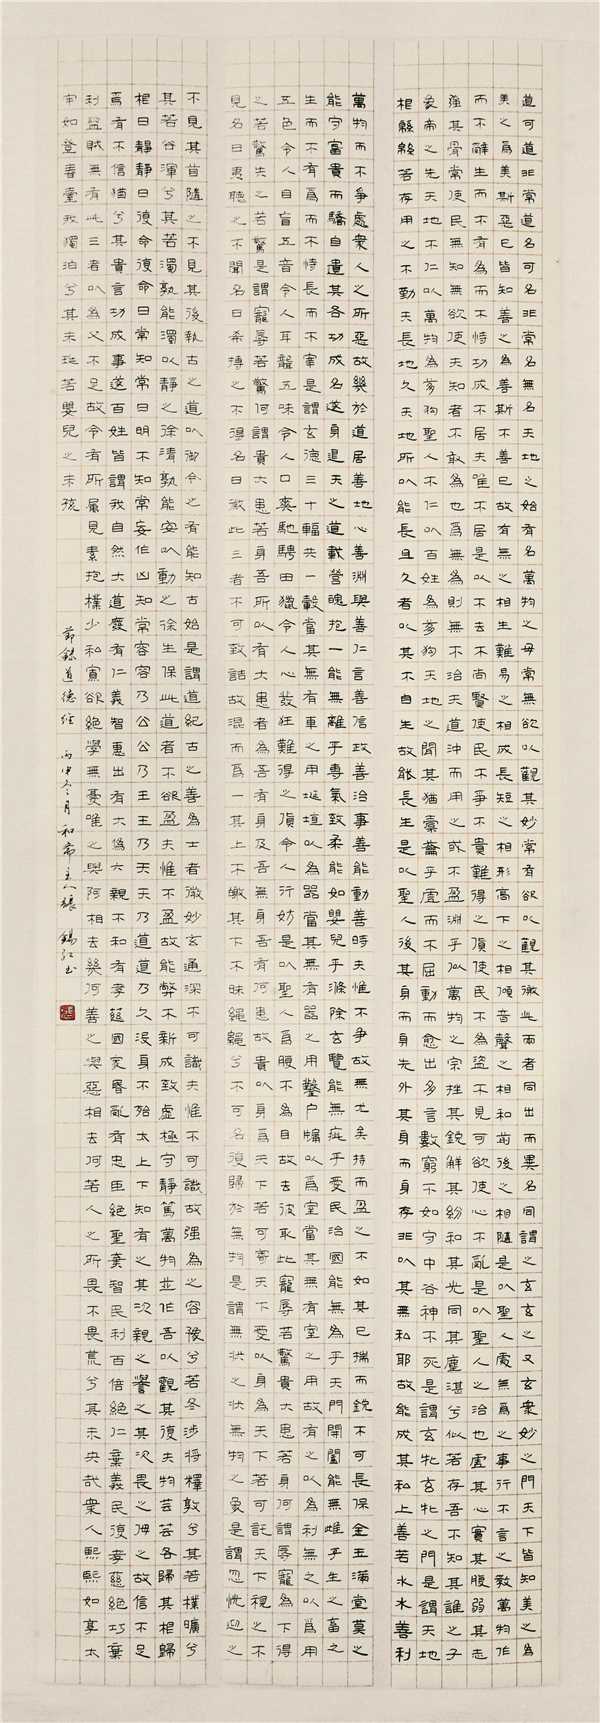 道可道非常道名可名非常名無名天地之始有名萬物之母常無欲以觀其妙常有欲以觀其徼此兩者同出而異名同謂之玄玄之又玄衆妙之門天下皆知美之為
美之為美斯惡已皆知善之為善斯不善已故有無之相生難易之相成長短之相形高下之相傾音聲之相和前後之相隨是以聖人處無為之事行不言之教萬物作
而不辭生而不有為而不恃功成不居夫唯不居是以不去不尚賢使民不爭不貴難得之貨使民不為盜不見可欲使心不亂是以聖人之治也虛其心實其腹弱其志
强其骨常使民無知無欲使夫知者不敢為也為無為則無不治天道沖而用之或不盈淵乎似萬物之宗挫其銳解其紛和其光同其塵湛兮似若存吾不知其誰之子
象帝之先天地不仁以萬物為芻狗聖人不仁以百姓為芻狗天地之間其猶橐籥乎虛而不屈動而愈出多言數窮不如守中谷神不死是謂玄牝玄牝之門是謂天地
根緜緜若存用之不勤天長地久天地所以能長且久者以其不自生故能長生是以聖人後其身而身先外其身而身存非以其無私耶故能成其私上善若水水善利
萬物而不爭處衆人之所惡故幾於道居善地心善淵與善仁言善信政善治事善能動善時夫惟不爭故無尤矣持而盈之不如其已揣而銳不可長保金玉滿堂莫之
能守富貴而驕自遺其咎功成名遂身退天之道載營魄抱一能無離乎專氣致柔能如嬰兒乎滌除玄覽能無疵乎愛民治國能無為乎天門開闔能無雌乎生之畜之
生而不有為而不恃長而不宰是謂玄德三十輻共一轂當其無有車之用埏埴以為器當其無有器之用鑿户牖以為室當其無有室之用故有之以為利無之以為用
五色令人目盲五音令人耳聾五味令人口爽馳騁田獵令人心發狂難得之貨令人行妨是以聖人為腹不為目故去彼取此寵辱若驚貴大患若身何謂辱寵為下得
之若驚失之若驚是謂寵辱若驚何謂貴大患若身吾所以有大患者為吾有身及吾無身吾有何患故貴以身為天下若可寄天下愛以身為天下若可託天下視之不
見名曰夷聽之不聞名曰希搏之不得名曰微此三者不可致詰故混而為一其上不皦其下不昧繩繩兮不可名復歸於無物是謂無狀之狀無物之象是謂忽恍迎之
不見其首隨之不見其後執古之道以御今之有能知古始是謂道紀古之善為士者微妙玄通深不可識夫惟不可識故强為之容豫兮若冬涉將釋敦兮其若樸曠兮
其若谷渾兮其若濁孰能濁以靜之徐清孰能安以動之徐生保此道者不欲盈夫惟不盈故能弊不新成致虛極守靜篤萬物並作吾以觀其復夫物芸芸各歸其根歸
根曰靜靜曰復命復命曰常知常曰明不知常妄作凶知常容容乃公公乃王王乃天天乃道道乃久沒身不殆太上下知有之其次親之譽之其次畏之侮之故信不足
焉有不信猶兮其貴言功成事遂百姓皆謂我自然大道廢有仁義智惠出有大偽六親不和有孝慈國家昏亂有忠臣絕聖棄智民利百倍絕仁棄義民復孝慈絕巧棄
利盜賊無有此三者以為文不足故令有所屬見素抱樸少私寡欲絕學無憂唯之與阿相去幾何善之與惡相去何若人之所畏不畏荒兮其未央哉衆人熙熙如享太
牢如登春臺我獨泊兮其未兆若嬰兒之未孩
節錄道德經 丙申冬月和齋主人張錫弘书